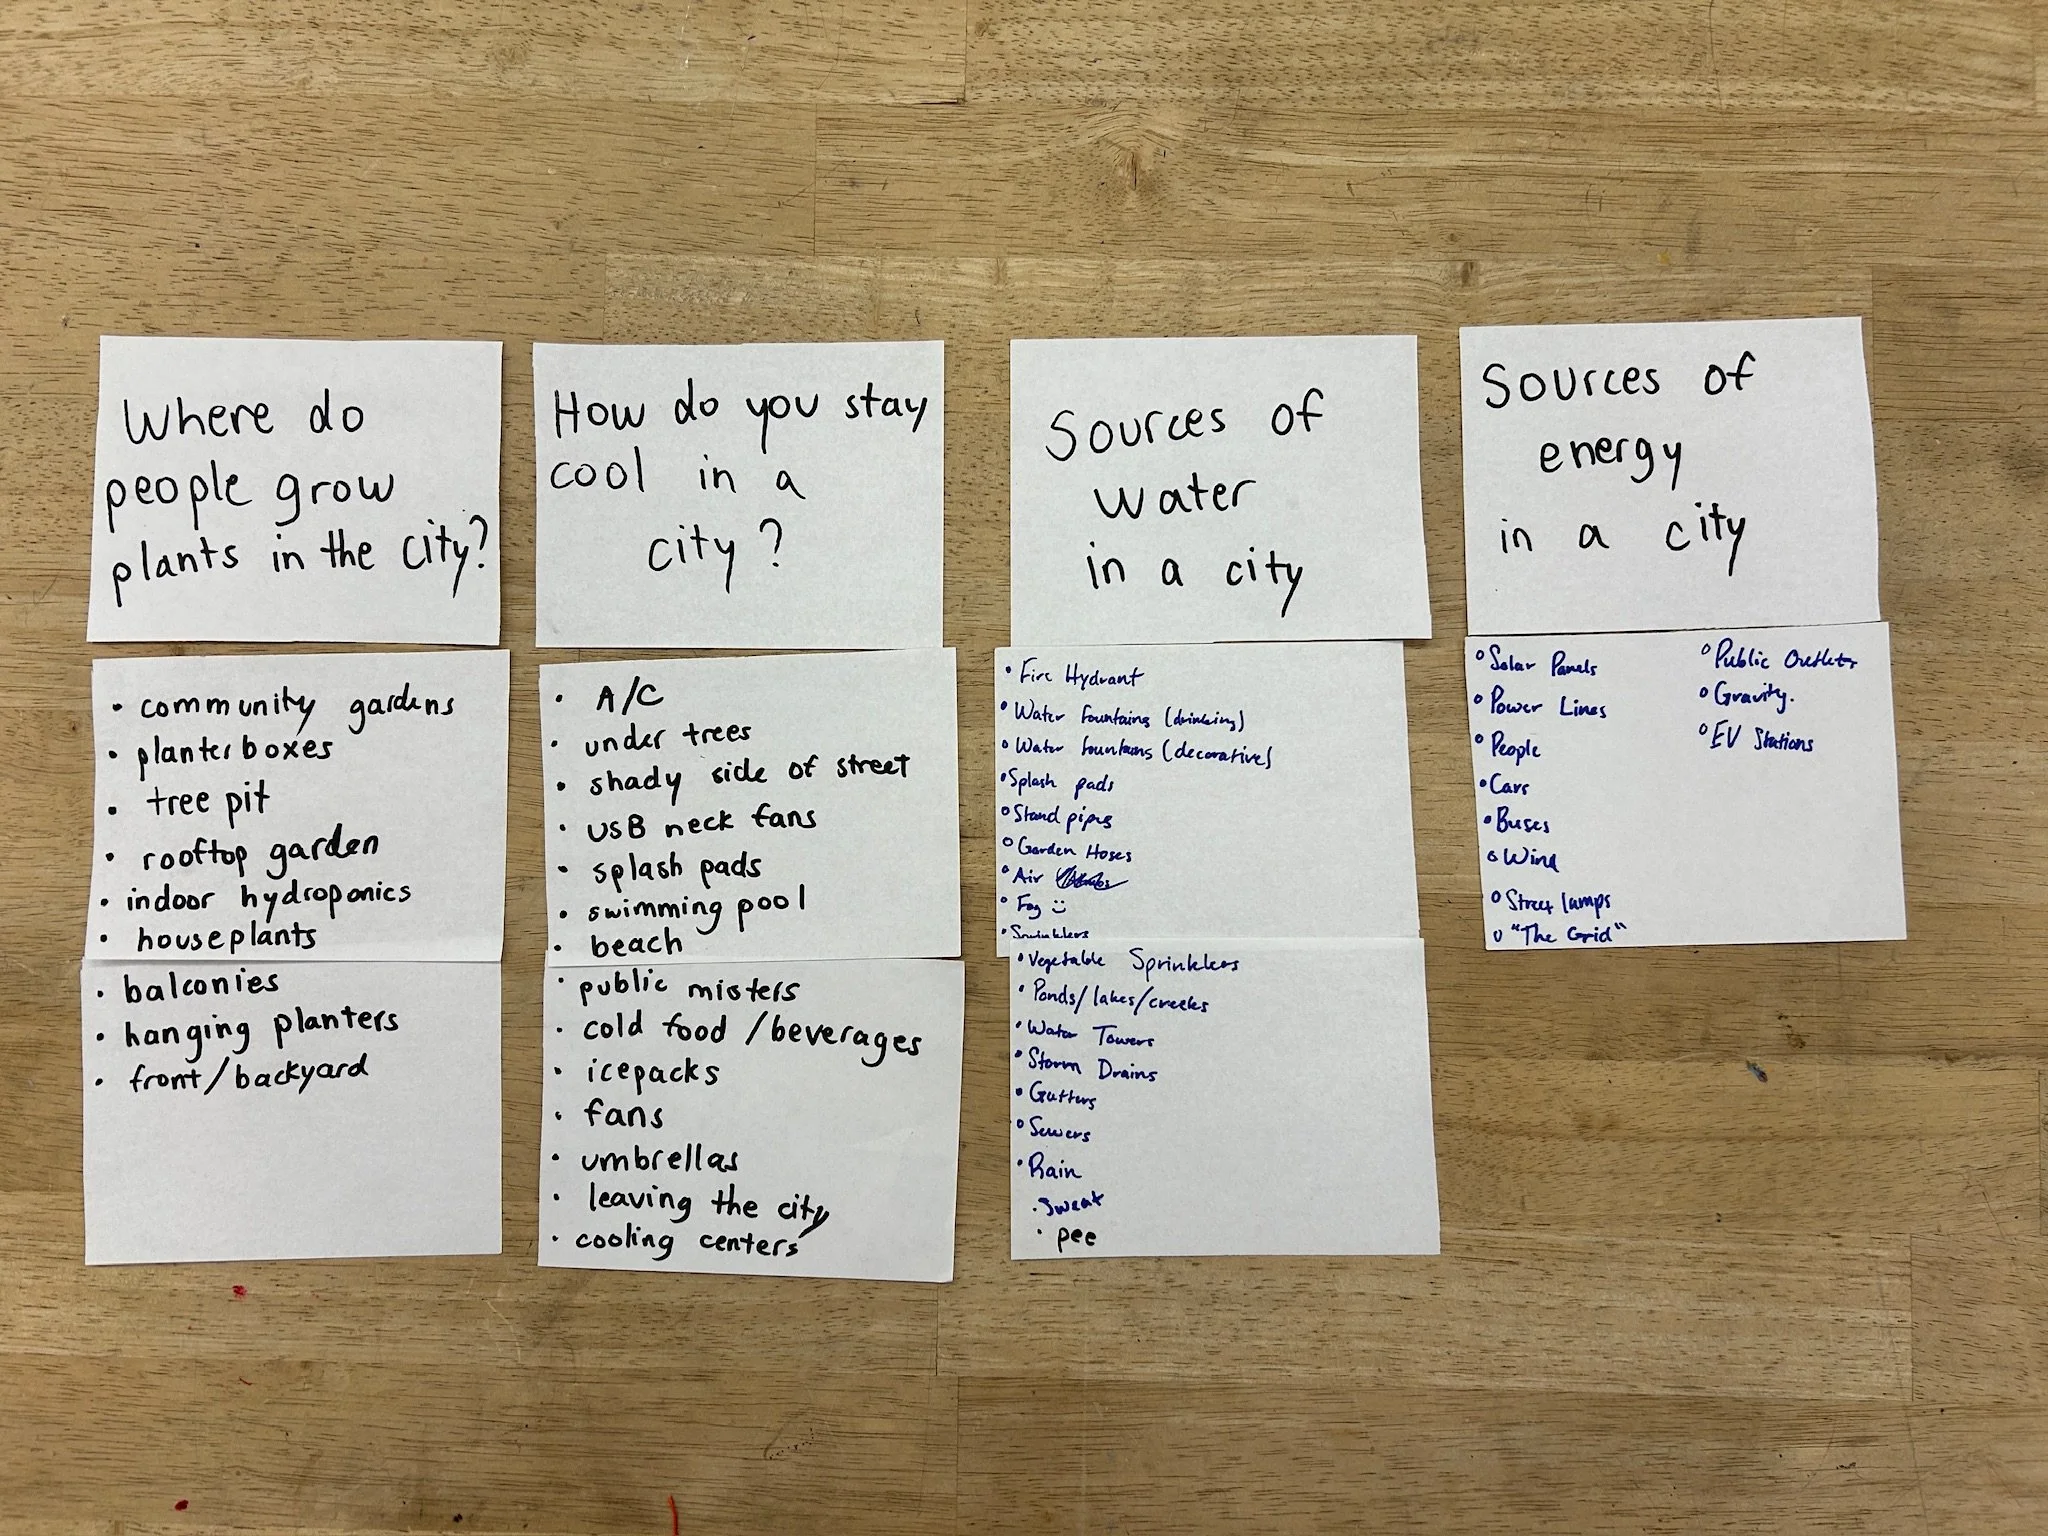 Where do
people grow
plants in the city?
• community gardens
• planter boxes
• tree pit
• rooftop garden
• indoor hydroponics
• houseplants
• balconies
• hanging planters
• front/backyard
How do you stay
cool in a
city?
• A/C
• under trees
• shady side of street
• USB neck fans
• splash pads
• swimming pool
• beach
• public misters
• cold food/beverages
• icepacks
• fans
• umbrellas
• leaving the city
• cooling centers
Sources of
water
in a city
• Fire Hydrant
• Water fountains (drinking)
• Water fountains (decorative)
• Splash pads
• Stand pipes
• Garden Hoses
• Air
• Fog :)
• Sprinklers
• Vegetable Sprinklers
• Ponds/lakes/creeks
• Water Towers
• Storm Drains
• Gutters
• Sewers
• Rain
• Sweat
• pee
Sources of
energy
in a city
• Solar Panels
• Power Lines
• People
• Cars
• Buses
• Wind
• Street lamps
• "The Grid"
• Public Outlets
• Gravity.
• EV Stations